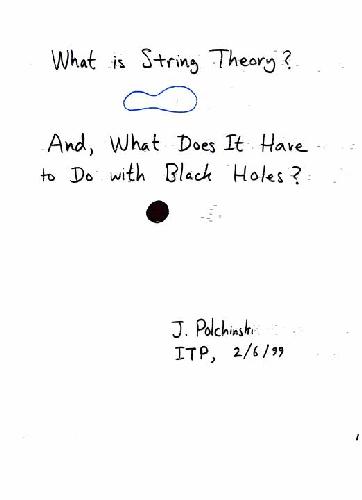 What is String Theory?
And, What Does It Have
to Do with Black Holes?
J. Polchinski
ITP, 2/6/99